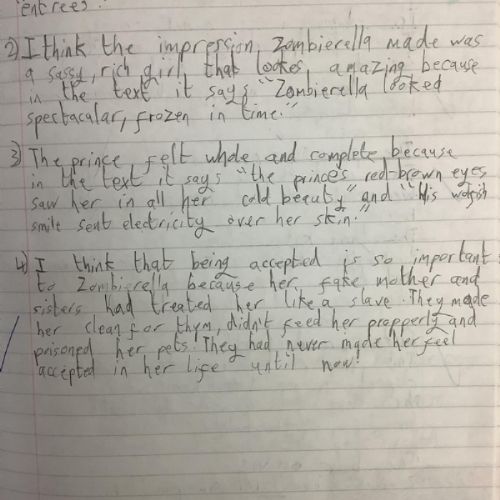 entrees.
2) I think the impression, Zombierella made was
a sassy, rich girl that lookes amazing because
in the text it says "Zombierella looked
spectacular, frozen in time."
3) The prince felt whole and complete because
in the text it says "the prince's red-brown eyes
saw her in all her cold beauty" and "His wolfish
smile sent electricity over her skin."
4) I think that being accepted is so important
to Zombierella because her fake mother and
sisters had treated her like a slave. They made
her clean for them, didn't feed her propperly and
prisoned her pets! They had never made her feel
accepted in her life until now!